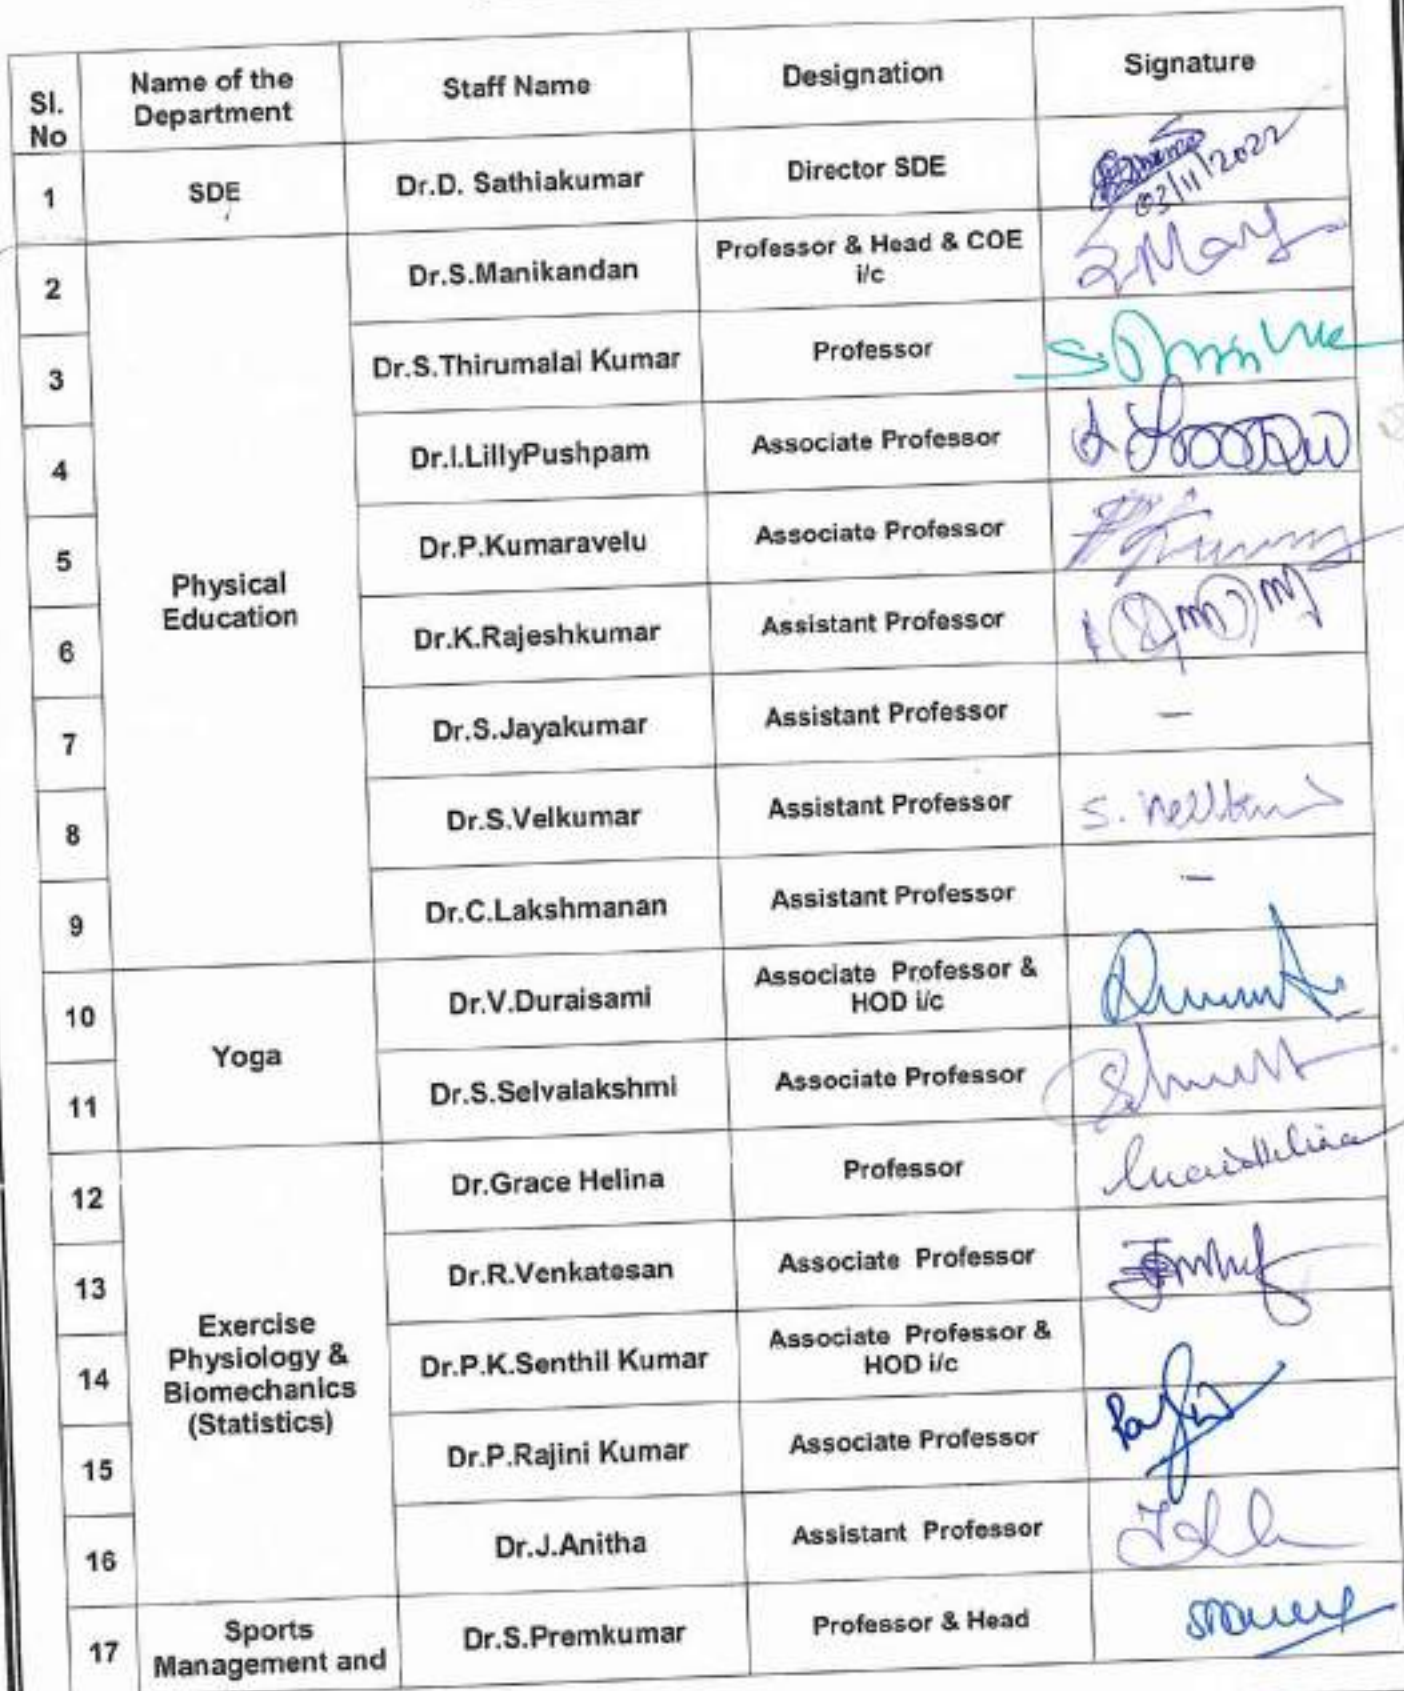 Sl. No Name of the Department Staff Name Designation Signature
1 SDE Dr.D. Sathiakumar Director SDE 03/11/2022
2 Physical Education Dr.S.Manikandan Professor & Head & COE i/c
3 Dr.S.Thirumalai Kumar Professor
4 Dr.I.LillyPushpam Associate Professor
5 Dr.P.Kumaravelu Associate Professor
6 Dr.K.Rajeshkumar Assistant Professor
7 Dr.S.Jayakumar Assistant Professor –
8 Dr.S.Velkumar Assistant Professor
9 Dr.C.Lakshmanan Assistant Professor –
10 Yoga Dr.V.Duraisami Associate Professor & HOD i/c
11 Dr.S.Selvalakshmi Associate Professor
12 Exercise Physiology & Biomechanics (Statistics) Dr.Grace Helina Professor
13 Dr.R.Venkatesan Associate Professor
14 Dr.P.K.Senthil Kumar Associate Professor & HOD i/c
15 Dr.P.Rajini Kumar Associate Professor
16 Dr.J.Anitha Assistant Professor
17 Sports Management and Dr.S.Premkumar Professor & Head